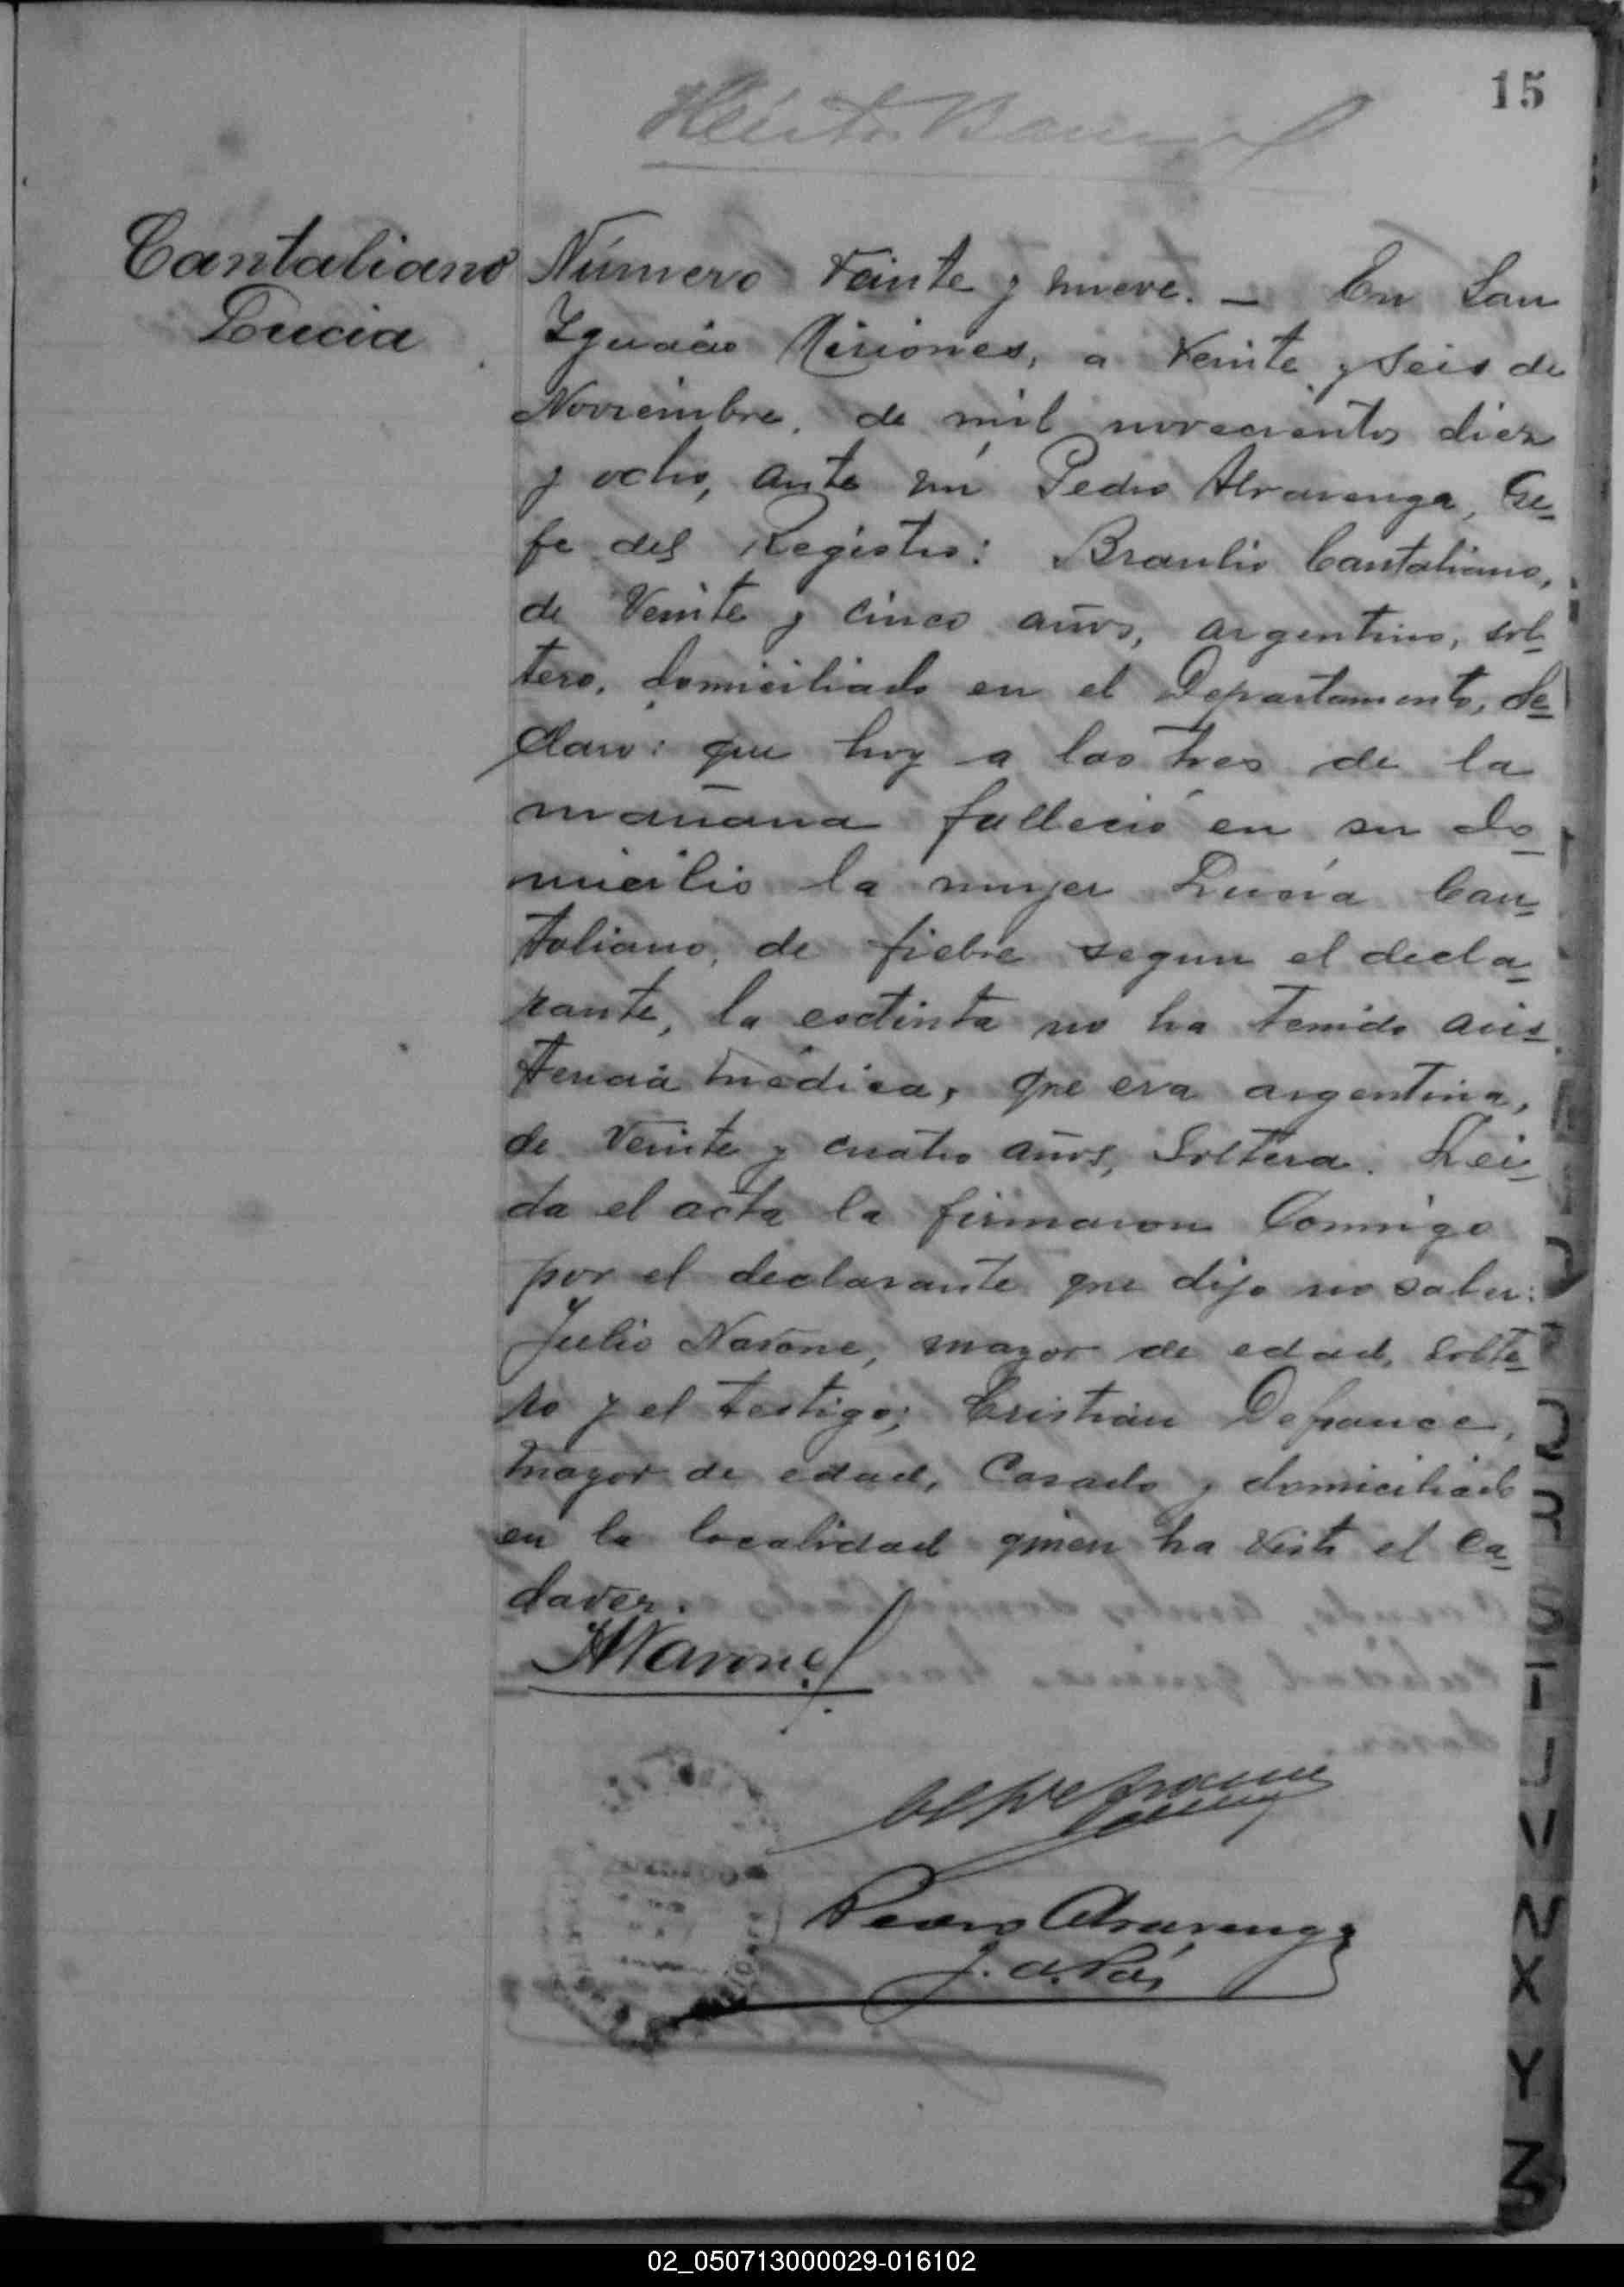 15
Héctor
Cantaliano
Lucia
Número Veinte y nueve. — En San
Ignacio Misiones, a Veinte y seis de
Noviembre, de mil novecientos diez
y ocho, ante mí Pedro Alvarenga, Ge-
fe del Registro: Braulio Cantaliano,
de Veinte y cinco años, argentino, sol-
tero, domiciliado en el Departamento, de-
claro: que hoy a las tres de la
mañana falleció en su do-
micilio la mujer Lucía Can-
taliano, de fiebre segun el decla-
rante, la extinta no ha tenido asis-
tencia médica, que era argentina,
de Veinte y cuatro años, Soltera. Lei-
da el acta la firmaron Conmigo
por el declarante que dijo no saber:
Julio Narone, mayor de edad, solte-
ro y el testigo; Cristián Defrance,
mayor de edad, Casado y domiciliado
en la localidad quien ha visto el ca-
daver.
Narone
Pedro Alvarenga
J. de Paz
A
R
S
T
U
V
X
Y
Z
02_050713000029-016102